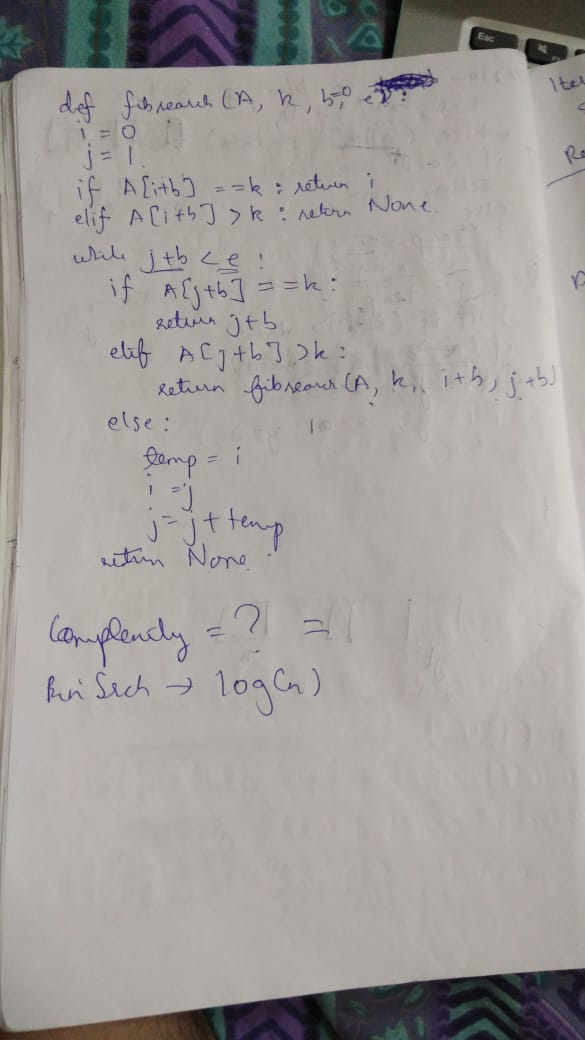 def fibsearch (A, k, b=0, e):
i = 0
j = 1
if A[i+b] == k : return i
elif A[i+b] > k : return None.
while j+b < e :
if A[j+b] == k :
return j+b
elif A[j+b] > k :
return fibsearch (A, k, i+b, j+b)
else :
temp = i
i = j
j = j + temp
return None.
Complexity = ? =
Bin Srch → log(n)
Esc
Iter
Re